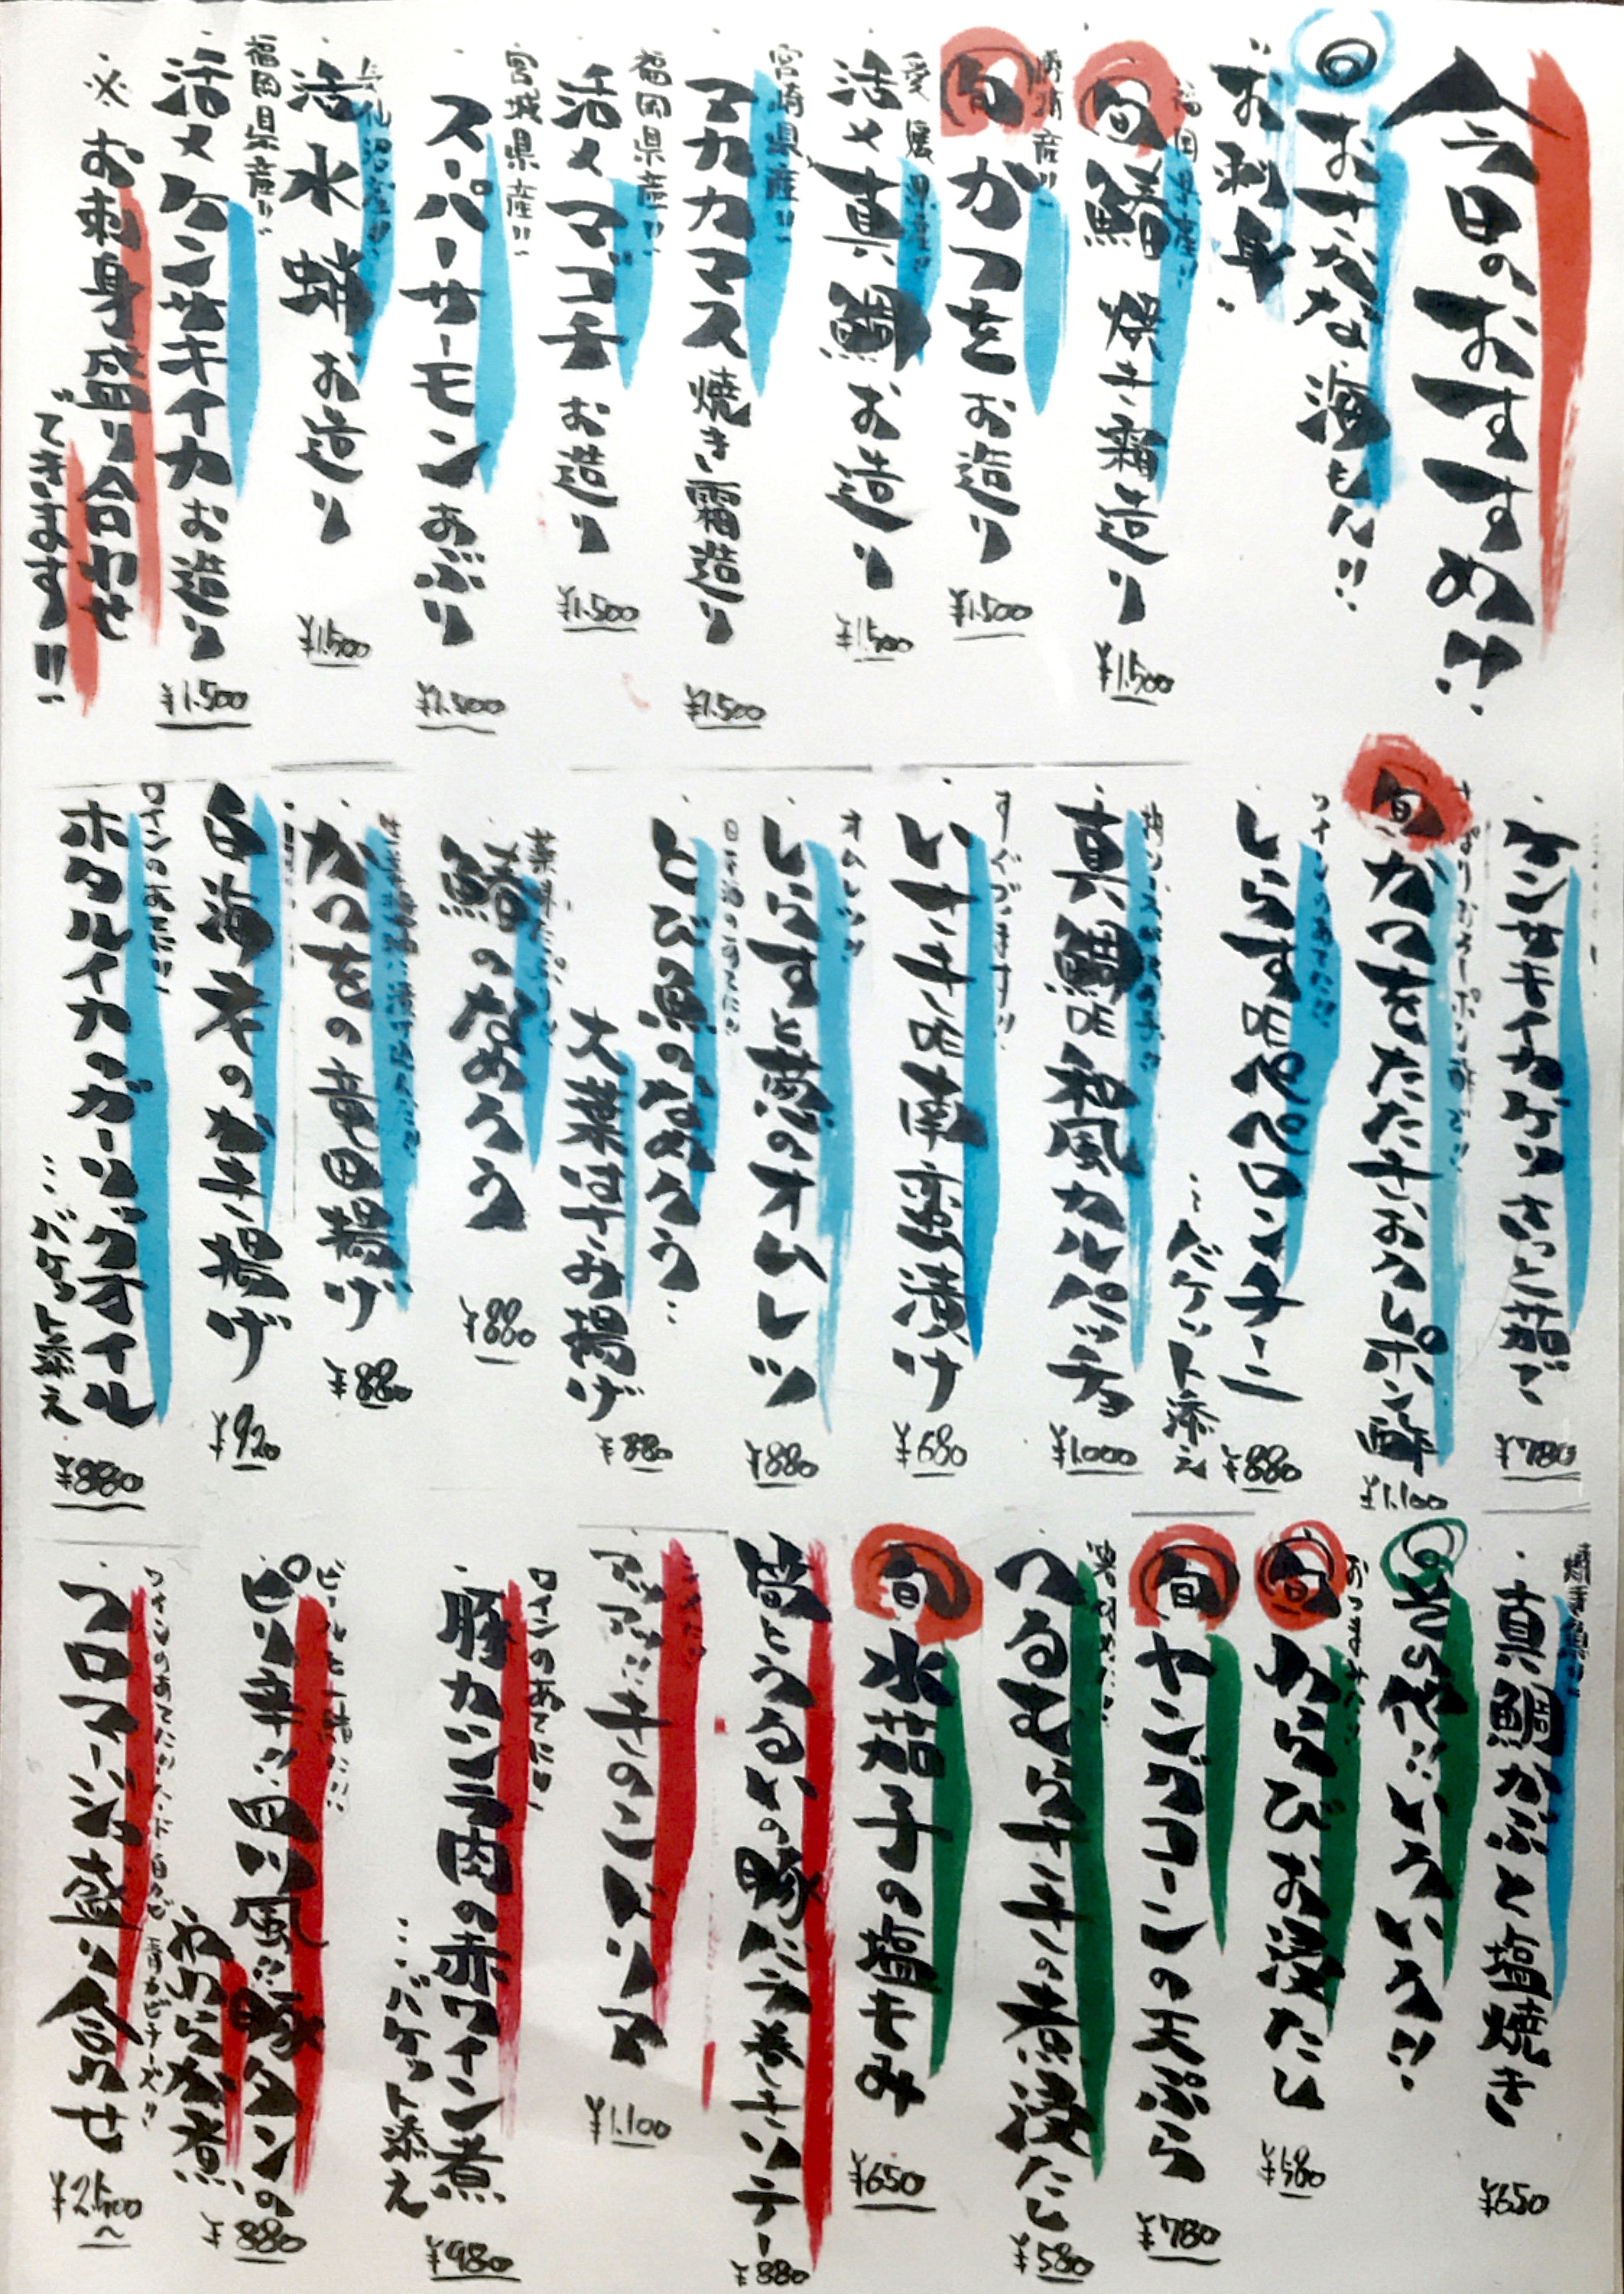 今日のおすすめ!!
◎おさかな・海もん!!
お刺身
福岡県産!!
旬 鰆 焼き霜造り
¥1,500
旬 かつを お造り
¥1,500
愛媛県産!!
活〆真鯛お造り
¥1,500
宮崎県産!!
アカカマス焼き霜造り
¥1,500
福岡県産!!
活〆マゴチ お造り
¥1,500
宮城県産!!
スーパーサーモンあぶり
¥1,500
活水蛸 お造り
¥1,500
福岡県産!!
活〆ケンサキイカお造り
¥1,500
※お刺身盛り合わせ
できます!!
ケンサキイカゲソさっと茹で
¥780
旬 かつをたたき おろしポン酢
¥1,100
ワインのあてに!!
しらすdeペペロンチーニ
…バケット添え
¥880
真鯛de和風カルパッチョ
¥1000
すぐでます!!
いさきde南蛮漬け
¥680
しらすと葱のオムレツ
¥880
とび魚のなめろう…
大葉はさみ揚げ
¥880
鰆のなめろう
¥880
かつをの竜田揚げ
¥880
白海老のかき揚げ
¥920
ワインのあてに!!
ホタルイカ・ガーリックオイル
…バケット添え
¥880
真鯛かぶと塩焼き
¥650
◎お野菜!!いろいろ!!
旬 わらびお浸たし
¥580
旬 ヤングコーンの天ぷら
¥780
つるむらさきの煮浸たし
¥580
旬 水茄子の塩もみ
¥650
皆とうるいの豚バラ巻きソテー
¥880
¥1,100
ワインのあてに!!
豚カシラ肉の赤ワイン煮
…バケット添え
¥980
ビールと一緒に!!
ピリ辛!!四川風!!豚タンの
やわらか煮
¥880
フロマージュ盛り合わせ
¥2,500〜